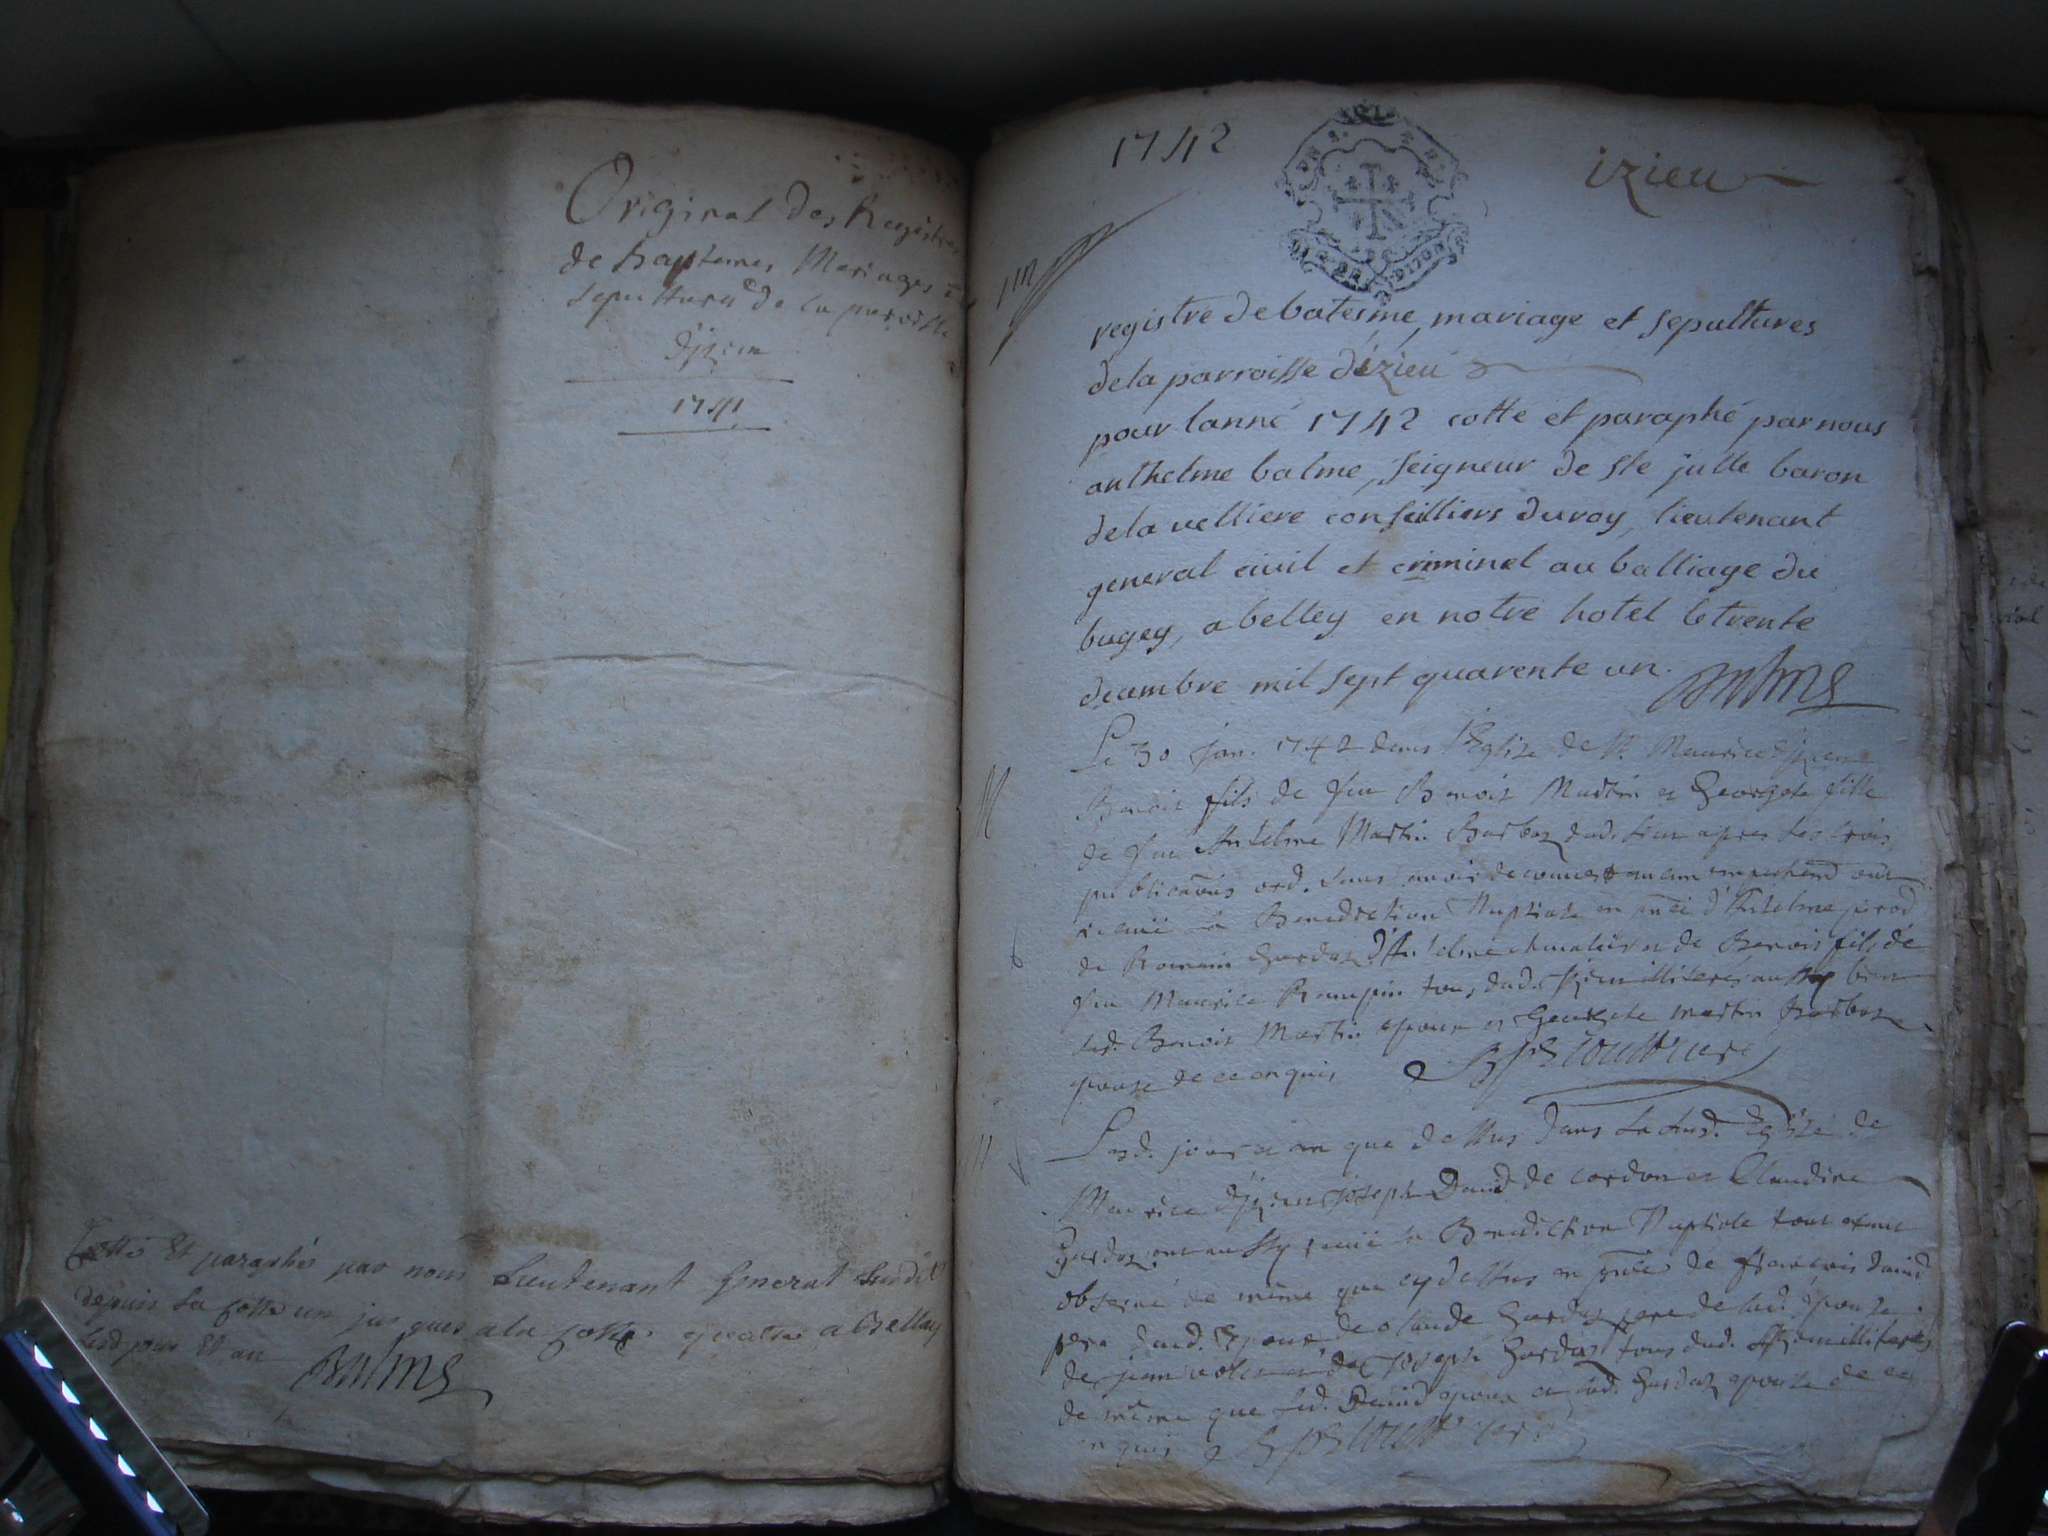 Original des Registres
de baptemes Mariages et
sepultures de la paroisse
d'jzieu
1741
Cotté Et paraphé par nous Lieutenant General susdit
depuis la cotte un jusques a la cotte quattre a Belley
lesd jour Et an Balme
1742
GEN DE DIJON
izieu
registre de batesme, mariage et sepultures
de la parroisse d'izieu
pour lanné 1742 cotte et paraphé par nous
anthelme balme, seigneur de ste julle baron
de la velliere conseilliers du roy, lieutenant
general civil et criminel au balliage du
bugey, a belley en notre hotel le trente
decembre mil sept quarente un. Balme
M
Le 30 jan. 1742 dans l'Eglise de St. Maurice d'jzieu
Benoit fils de feu Benoit Martin et Georgete fille
de feu Antelme Martin Barbaz dud. lieu apres les trois
publica͠ons ord. sans avoir decouvert aucun empechem͠ ont
receu la Benediction Nuptiale en pn͠ce d'Antelme
de Romain Gardaz d'Antelme et de Benoit fils de
feu Maurice Rampin tous dud. Jzieu illiteres aussy bien
led. Benoit Martin epoux et Georgete Martin Barbaz
epouse de ce enquis
Lesd. jour et an que dessus dans la susd. Eglise de
Maurice d'jzieu Joseph David de cordon et Claudine
Gardaz ont aussy receu la Benediction Nuptiale tout etant
observé de même que cy dessus en pn͠ce de francois David
pere dud. Epoux, de claude Gardaz pere de lad. epouse
de jean et de Joseph Gardaz tous dud. Jzieu illiteres
de même que led. David epoux et lad. Gardaz epouse de ce
enquis